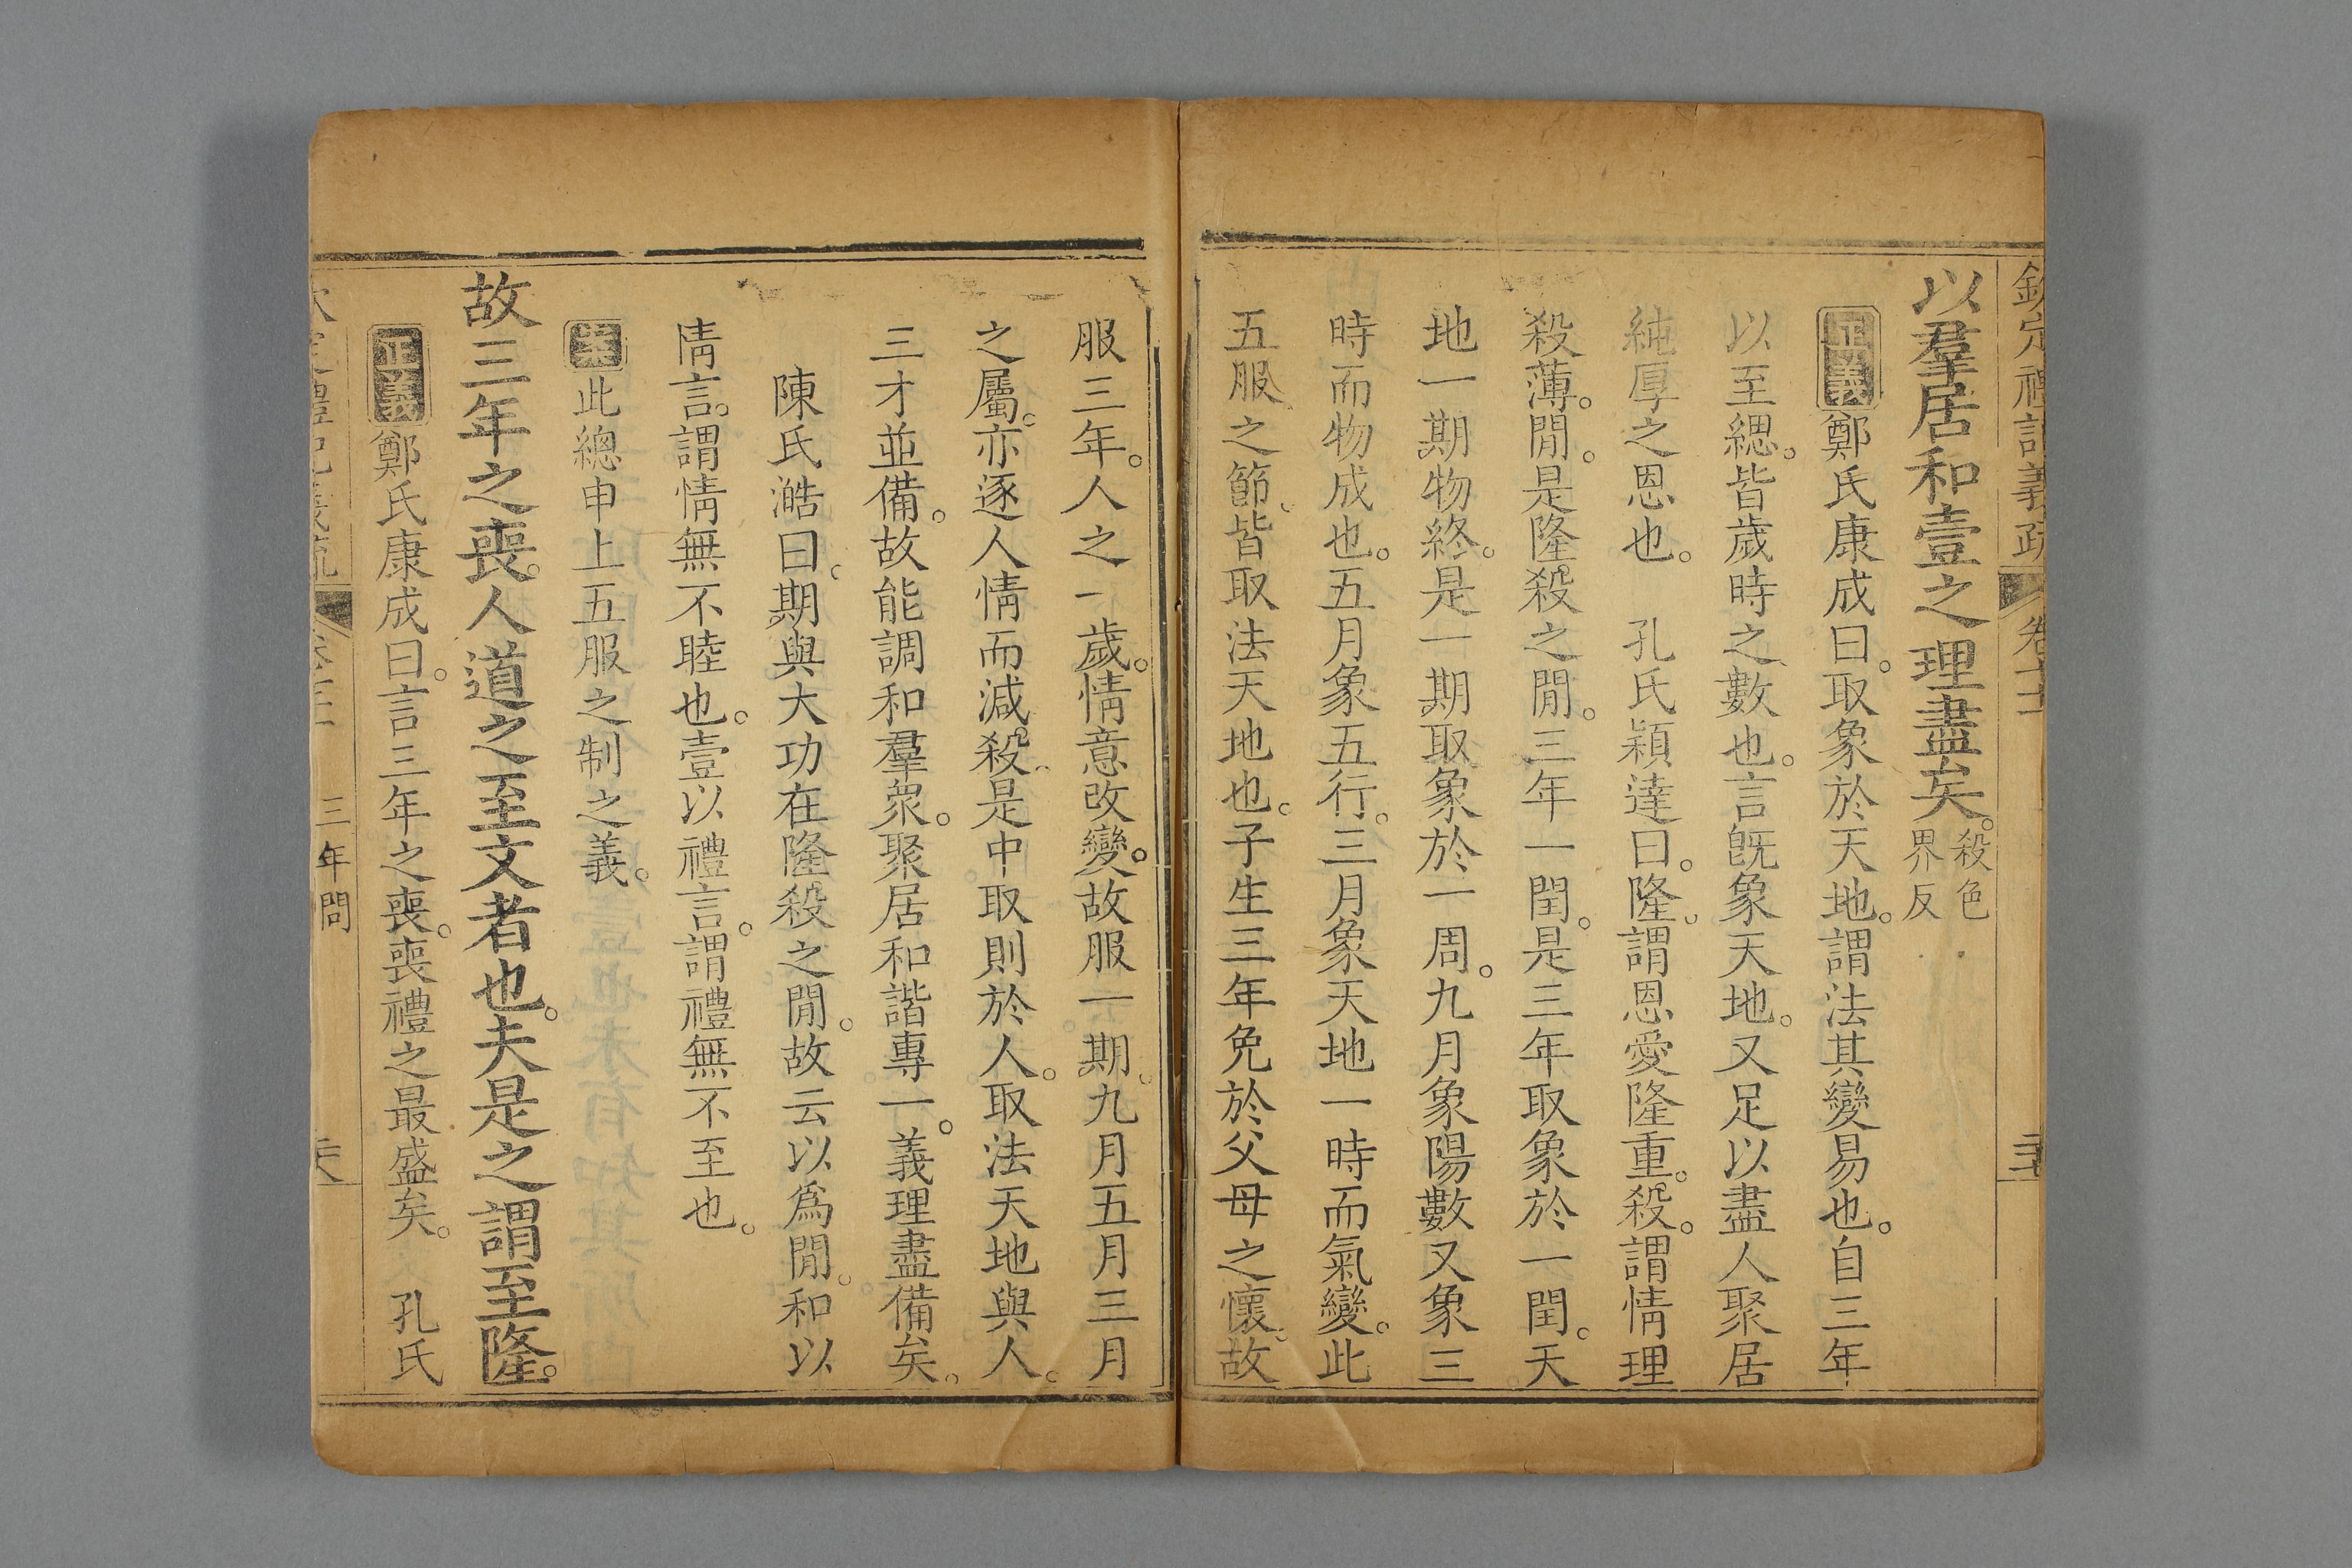 欽定禮記義疏 卷七十二
以羣居和壹之理盡矣。殺色界反
正義鄭氏康成曰。取象於天地。謂法其變易也。自三年
以至緦。皆歲時之數也。言旣象天地。又足以盡人聚居
純厚之恩也。 孔氏穎達曰。隆。謂恩愛隆重。殺。謂情理
殺薄。閒。是隆殺之閒。三年一閏。是三年取象於一閏。天
地一期物終。是一期取象於一周。九月象陽數又象三
時而物成也。五月象五行。三月象天地一時而氣變。此
五服之節。皆取法天地也。子生三年免於父母之懷。故
服三年。人之一歲。情意改變。故服一期。九月五月三月
之屬。亦逐人情而減殺。是中取則於人。取法天地與人。
三才並備。故能調和羣衆。聚居和諧專一。義理盡備矣。
陳氏澔曰。期與大功在隆殺之閒。故云以爲閒。和以
情言。謂情無不睦也。壹以禮言。謂禮無不至也。
案此總申上五服之制之義。
故三年之喪。人道之至文者也。夫是之謂至隆。
正義鄭氏康成曰。言三年之喪。喪禮之最盛矣。 孔氏
三年問